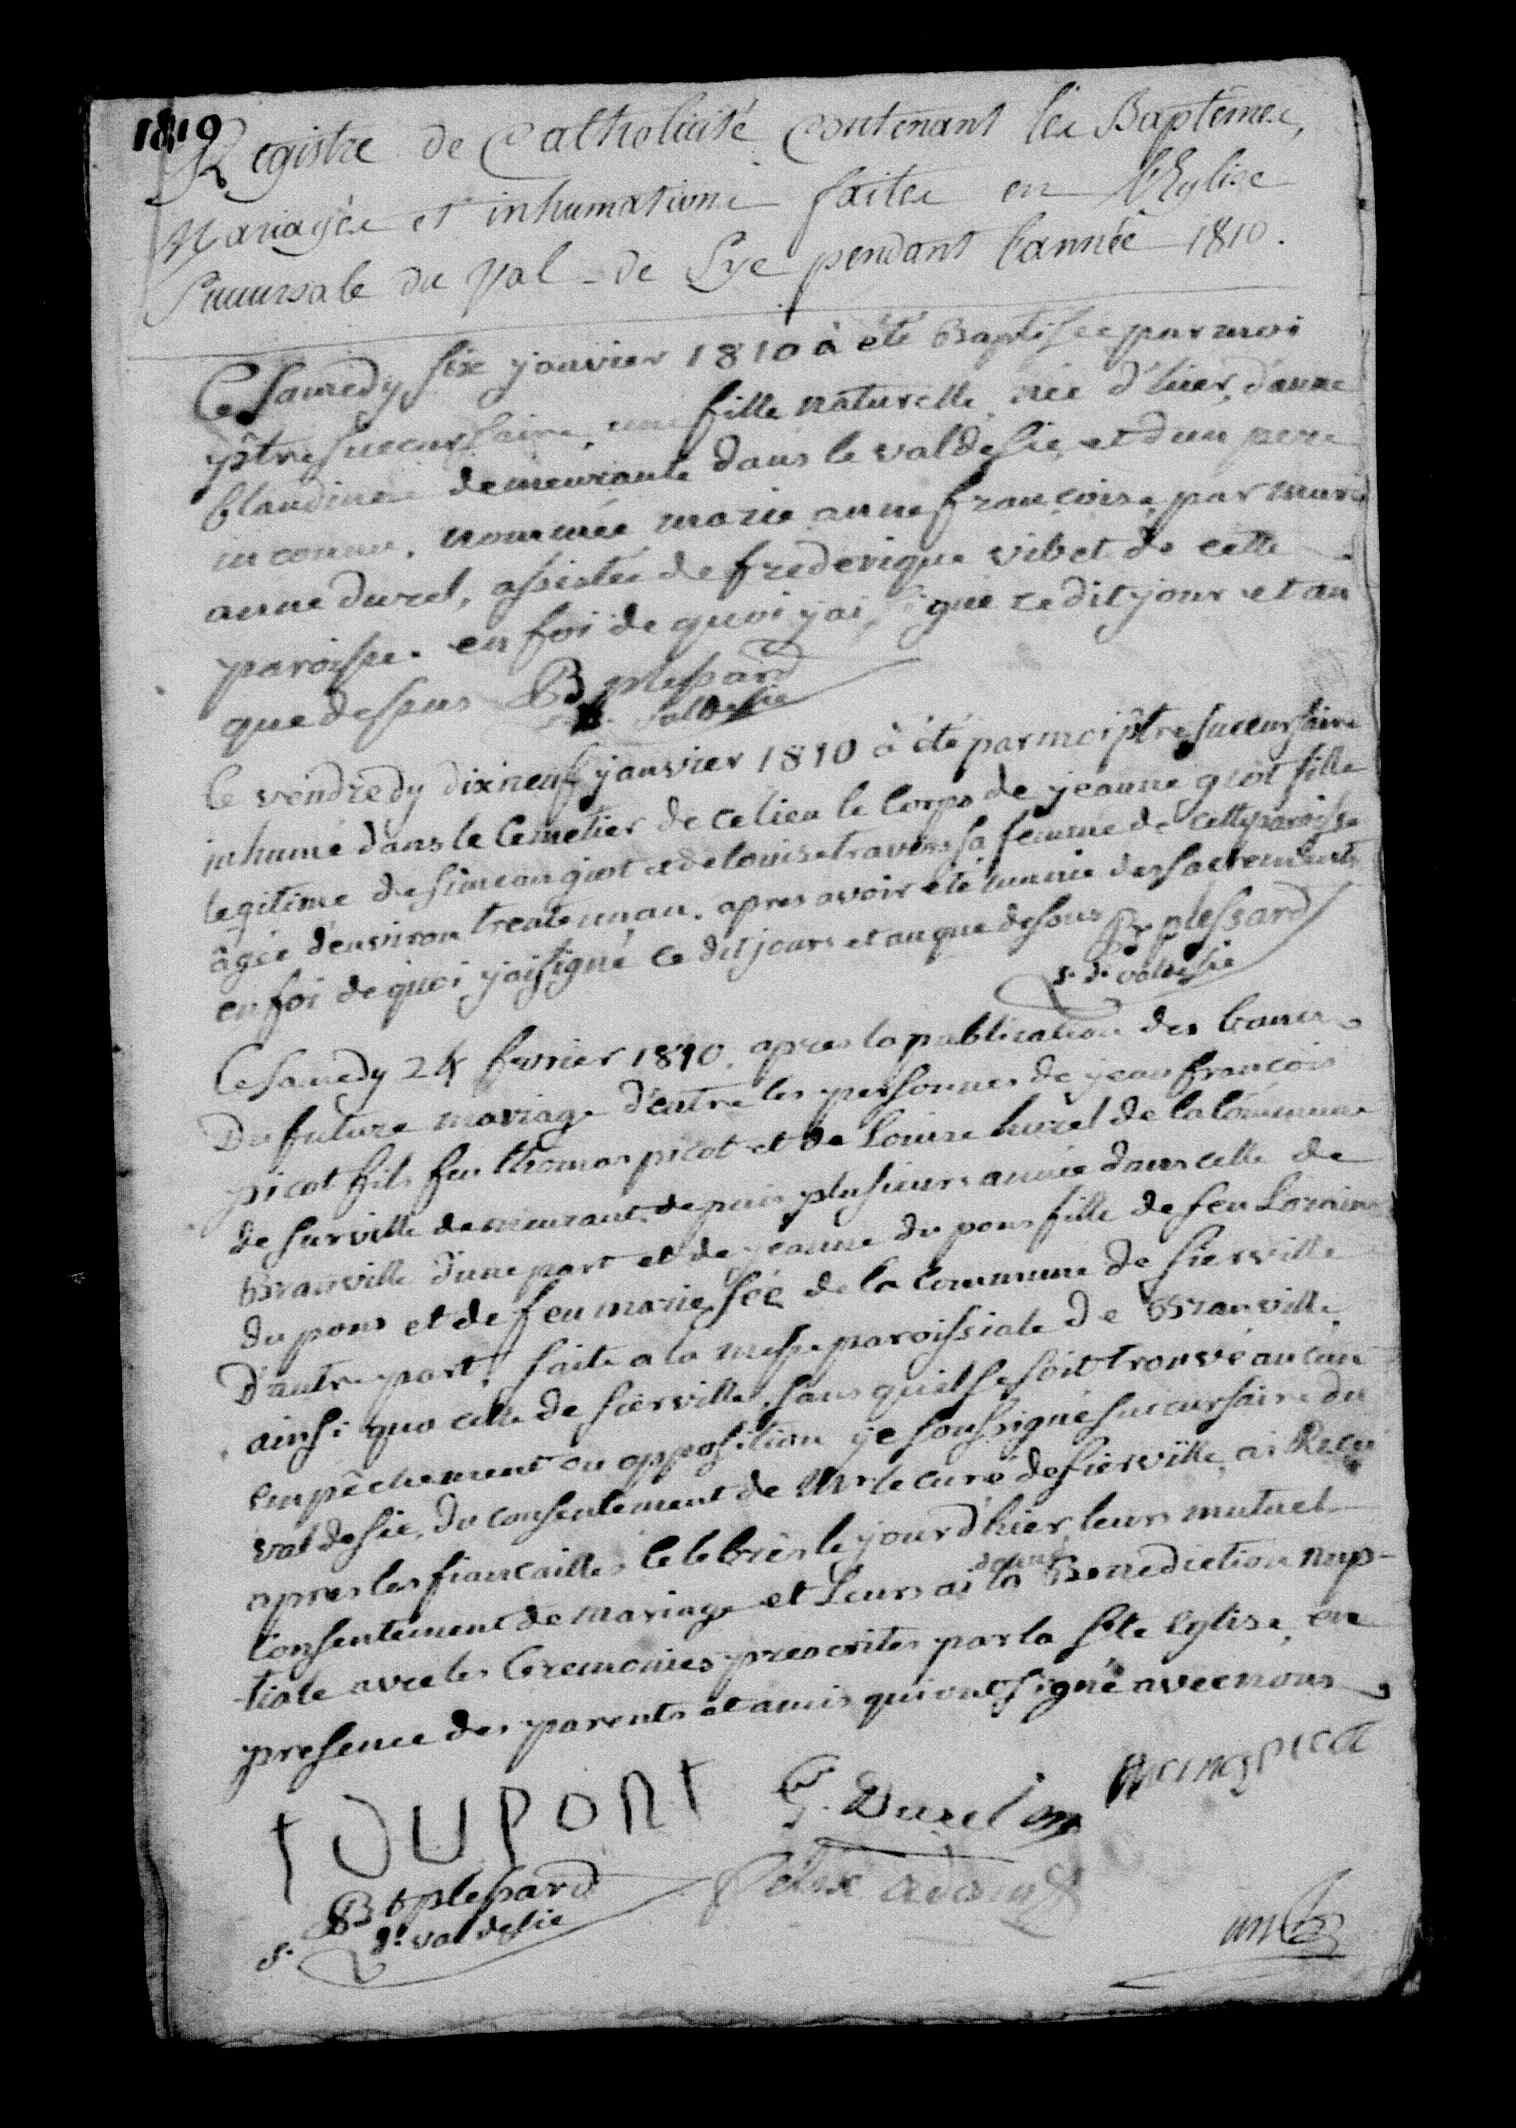 1810
Registre de Catholicité Contenant les Baptêmes,
Mariages et inhumations faites en l'Eglise
Succursale du Val-de Sye pendant l'année 1810.
Ce samedy six janvier 1810 à été Baptisée par moi
ptre succursaire, une fille naturelle, née d'hier, d'anne
blandine demeurante dans le valdesie et d'un pere
inconnu, nommée marie anne françoise, par marie
anne durel, assistée de frederique vibet de cette
paroisse. en foi de quoi j'ai signé ce dit jour et an
que dessus B plessard
valdesie
le vendredy dix neuf janvier 1810 à été par moi ptre succursaire
inhumé dans le Cemetier de ce lieu le Corps de jeanne giot fille
legitime de simeon giot et de louise travers sa femme de cette paroisse
âgée d'environ trente un an. apres avoir été munie des sacrements
en foi de quoi j'ai signé ce dit jour et an que dessus Bt plessard
s. d. valdesie
Ce samedy 24 fevrier 1810. apres la publication des bancs
Du future mariage d'entre les personnes de jean françois
picot fils feu thomas picot et de Louise hurel de la Commune
de surville demeurant depuis plusieurs année dans celle de
Branville d'une part et de jeanne du pons fille de feu
du pons et de feu marie sée de la Commune de sierville
D'autre part, faite a la messe paroissiale de Branville
ainsi que celle de sierville, sans qu'il se soit trouvé aucun
empêchement ou opposition je soussigné succursaire du
val de sie, du consentement de Mr le curé de sierville, ai Reçu
apres les fiançailles Celebrés le jour d'hier, leurs mutuel
Consentement de mariage et Leurs ai donné la Benediction nup-
-tiale avec les Ceremonies prescrites par la Ste Eglise, en
presence des parents et amis qui ont signé avec nous
DUPONT G. Durel
Bt plessard felix adam
s. d. val de sie